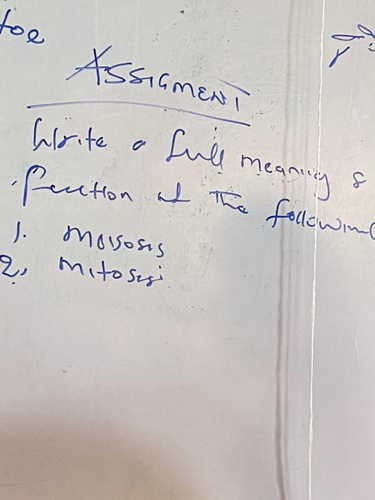 toe
ASSIGMENT
Write a full meaning &
function of the following
1. Moiosis
2, Mitosis